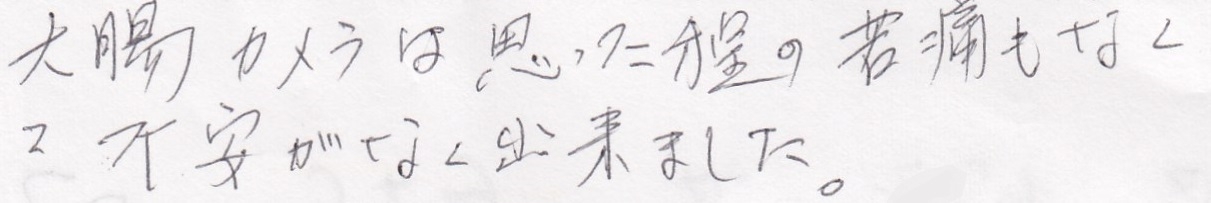 大腸カメラは思った程の苦痛もなく
て不安がなく出来ました。